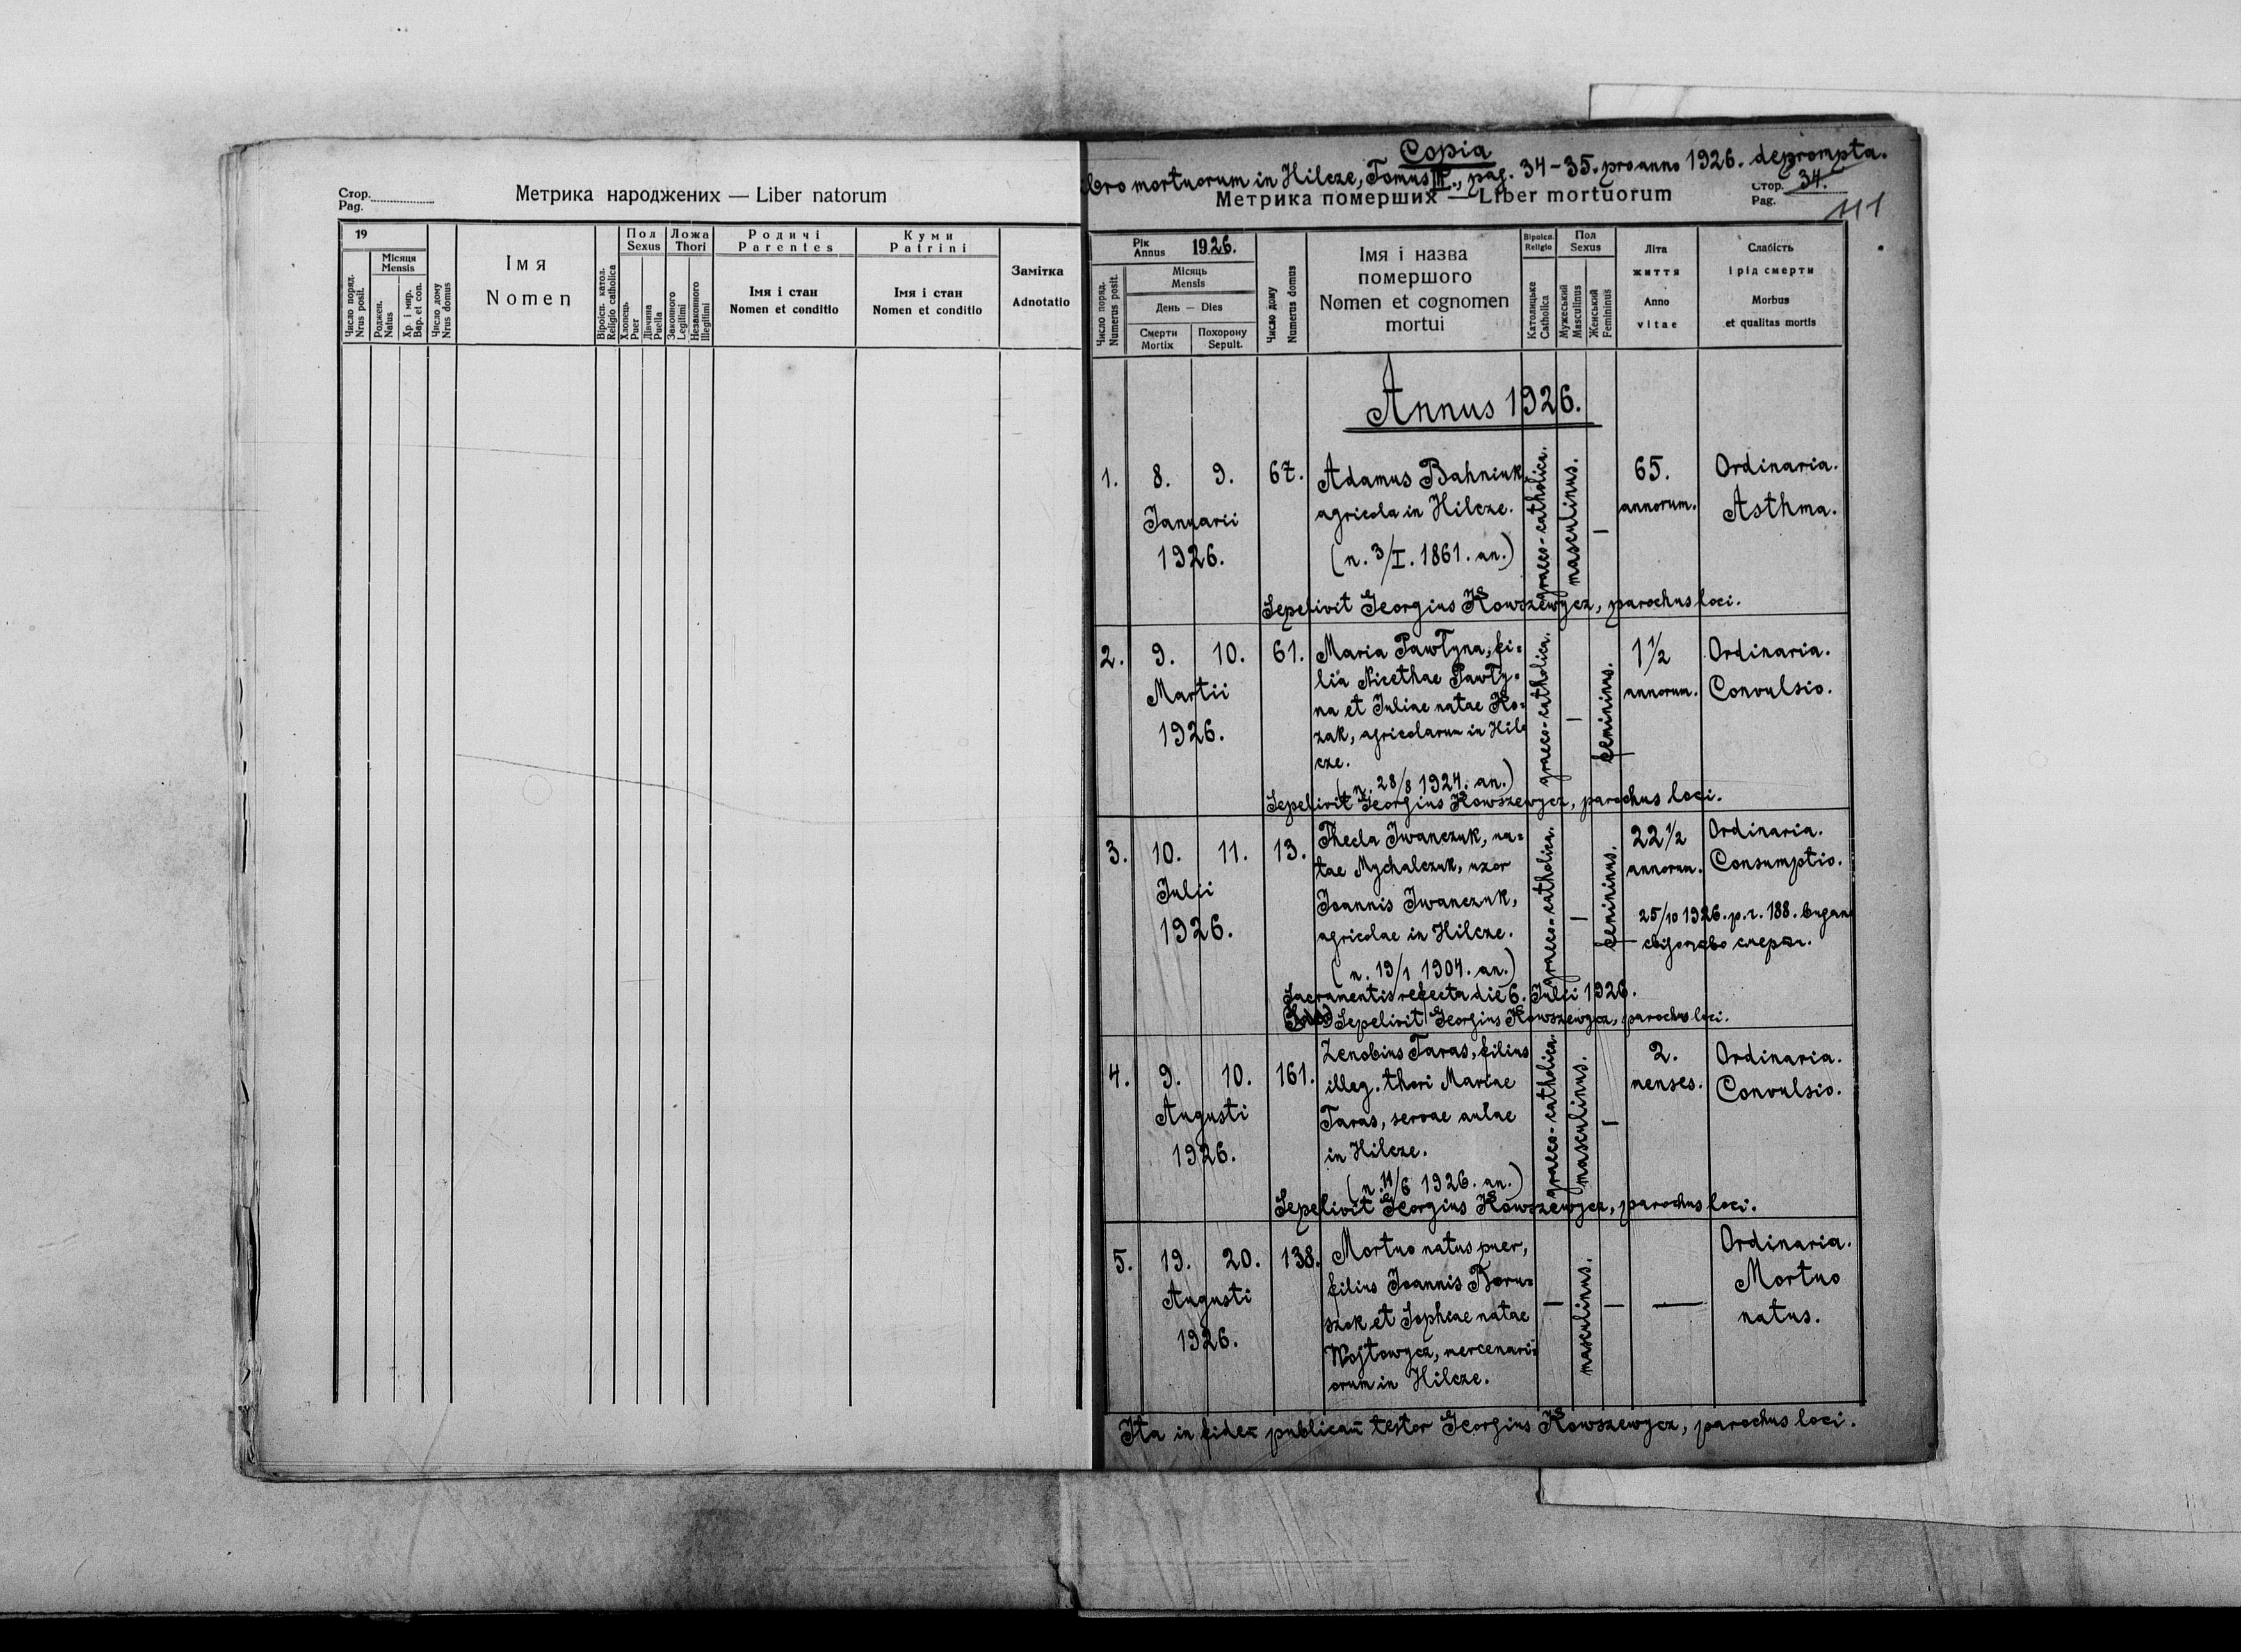 Стор.
Pag.
Метрика народжених — Liber natorum
19
Число поряд.
Nrus posit.
Місяця
Mensis
Роджен.
Natus
Хр. і мир.
Bap. et con.
Число дому
Nrus domus
Імя
Nomen
Віроісп. катол.
Religio catholica
Пол
Sexus
Хлопець
Puer
Дівчина
Puella
Ложа
Thori
Законного
Legitimi
Незаконного
Illegitimi
Родичі
Parentes
Імя і стан
Nomen et conditio
Куми
Patrini
Імя і стан
Nomen et conditio
Замітка
Adnotatio
Copia
libro mortuorum in Hilcze, Tomus III., pag. 34-35. pro anno 1926. deprompta.
Метрика померших — Liber mortuorum
Стор.
Pag.
34.
111
Число поряд.
Numerus posit.
Рік
Annus
1926.
Місяць
Mensis
День — Dies
Смерти
Mortix
Похорону
Sepult.
Число дому
Numerus domus
Імя і назва
помершого
Nomen et cognomen
mortui
Віроісп.
Religio
Католицьке
Catholica
Пол
Sexus
Мужеський
Masculinus
Женський
Femininus
Літа
життя
Anno
vitae
Слабість
і рід смерти
Morbus
et qualitas mortis
Annus 1926.
1. 8. 9. 67.
Januarii
1926.
Adamus Bahniuk,
agricola in Hilcze.
(n. 3/I. 1861. an.)
graeco-catholica.
masculinus.
—
65.
annorum.
Ordinaria.
Asthma.
Sepelivit Georgius Kowszewycz, parochus loci.
2. 9. 10. 61.
Martii
1926.
Maria Pawłyna, fi=
lia Nicethae Pawły=
na et Juliae natae Ko=
zak, agricolarum in Hil=
cze.
(n. 28/8 1924. an.)
graeco-catholica.
—
femininus.
1 1/2
annorum.
Ordinaria.
Convulsio.
Sepelivit Georgius Kowszewycz, parochus loci.
3. 10. 11. 13.
Julii
1926.
Thecla Iwanczuk, na=
tae Mychalczuk, uxor
Joannis Iwanczuk,
agricolae in Hilcze.
(n. 19/1 1904. an.)
graeco-catholica.
—
femininus.
22 1/2
annorum.
Ordinaria.
Consumptio.
25/10 1926. р. ч. 188. видан
свідоцтво смерти.
Sacramentis refecta die 6. Julii 1926.
Sepelivit Georgius Kowszewycz, parochus loci.
4. 9. 10. 161.
Augusti
1926.
Zenobius Taras, filius
illeg. thori Mariae
Taras, servae aulae
in Hilcze.
(n. 11/6 1926. an.)
graeco-catholica.
masculinus.
—
2.
menses.
Ordinaria.
Convulsio.
Sepelivit Georgius Kowszewycz, parochus loci.
5. 19. 20. 138.
Augusti
1926.
Mortuo natus puer,
filius Joannis Boru=
szok et Sopheae natae
Wojtowycz, mercenari=
orum in Hilcze.
—
masculinus.
—
—
Ordinaria.
Mortuo
natus.
Ita in fidem publicam testor Georgius Kowszewycz, parochus loci.